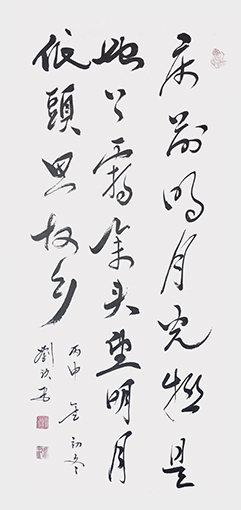 床前明月光疑是
地上霜举头望明月
低頭思故乡
丙申初冬
劉